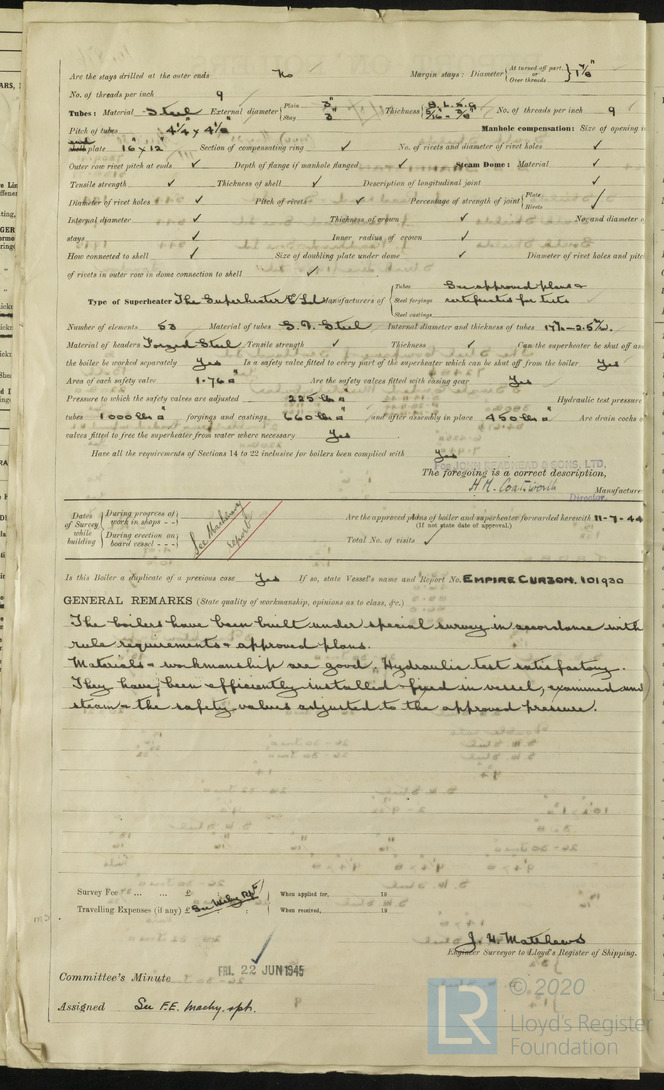 Are the stays drilled at the outer ends No Margin stays: Diameter { At turned off part, or Over threads } 1 7/8"
No. of threads per inch 9
Tubes: Material Steel External diameter { Plain 3" Stay 3" Thickness { 8 L.S.G. 5/16" - 3/8" No. of threads per inch 9
Pitch of tubes 4 1/4" x 4 1/8" Manhole compensation: Size of opening i
end plate 16" x 12" Section of compensating ring ✓ No. of rivets and diameter of rivet holes ✓
Outer row rivet pitch at ends ✓ Depth of flange if manhole flanged ✓ Steam Dome: Material ✓
Tensile strength ✓ Thickness of shell ✓ Description of longitudinal joint ✓
Diameter of rivet holes ✓ Pitch of rivets ✓ Percentage of strength of joint { Plate Rivets ✓
Internal diameter ✓ Thickness of crown ✓ No. and diameter o
stays ✓ Inner radius of crown ✓
How connected to shell ✓ Size of doubling plate under dome ✓ Diameter of rivet holes and pitc
of rivets in outer row in dome connection to shell ✓
Type of Superheater The Superheater Co Ltd Manufacturers of { Tubes Steel forgings Steel castings See approved plans & certificates for tests
Number of elements 53 Material of tubes S.D. Steel Internal diameter and thickness of tubes 17 m/m - 2.5 m/m.
Material of headers Forged Steel Tensile strength ✓ Thickness ✓ Can the superheater be shut off an
the boiler be worked separately Yes Is a safety valve fitted to every part of the superheater which can be shut off from the boiler Yes
Area of each safety valve 1.76 □" Are the safety valves fitted with easing gear Yes
Pressure to which the safety valves are adjusted 225 lbs □" Hydraulic test pressure
tubes 1000 lbs □" forgings and castings 660 lbs □" and after assembly in place 450 lbs □" Are drain cocks o
valves fitted to free the superheater from water where necessary Yes
Have all the requirements of Sections 14 to 22 inclusive for boilers been complied with Yes
For JOHN READHEAD & SONS, LTD.
The foregoing is a correct description,
H. M. Coatsworth Manufacture
Director.
Dates of Survey while building { During progress of work in shops - - } { During erection on board vessel - - - } See Machinery report
Are the approved plans of boiler and superheater forwarded herewith 11-7-44
(If not state date of approval.)
Total No. of visits ✓
Is this Boiler a duplicate of a previous case Yes If so, state Vessel's name and Report No. EMPIRE CURZON. 101930
GENERAL REMARKS (State quality of workmanship, opinions as to class, &c.)
The boilers have been built under special survey in accordance with
rule requirements & approved plans.
Materials & workmanship are good. Hydraulic test satisfactory.
They have been efficiently installed & fixed in vessel, examined und
steam & the safety valves adjusted to the approved pressure.
Survey Fee ... ... £ When applied for, 19
Travelling Expenses (if any) £ See Mchy Rpt When received, 19
J. H. Matthews
Engineer Surveyor to Lloyd's Register of Shipping.
Committee's Minute FRI. 22 JUN 1945
Assigned See F.E. machy. rpt.
LR © 2020
Lloyd's Register
Foundation